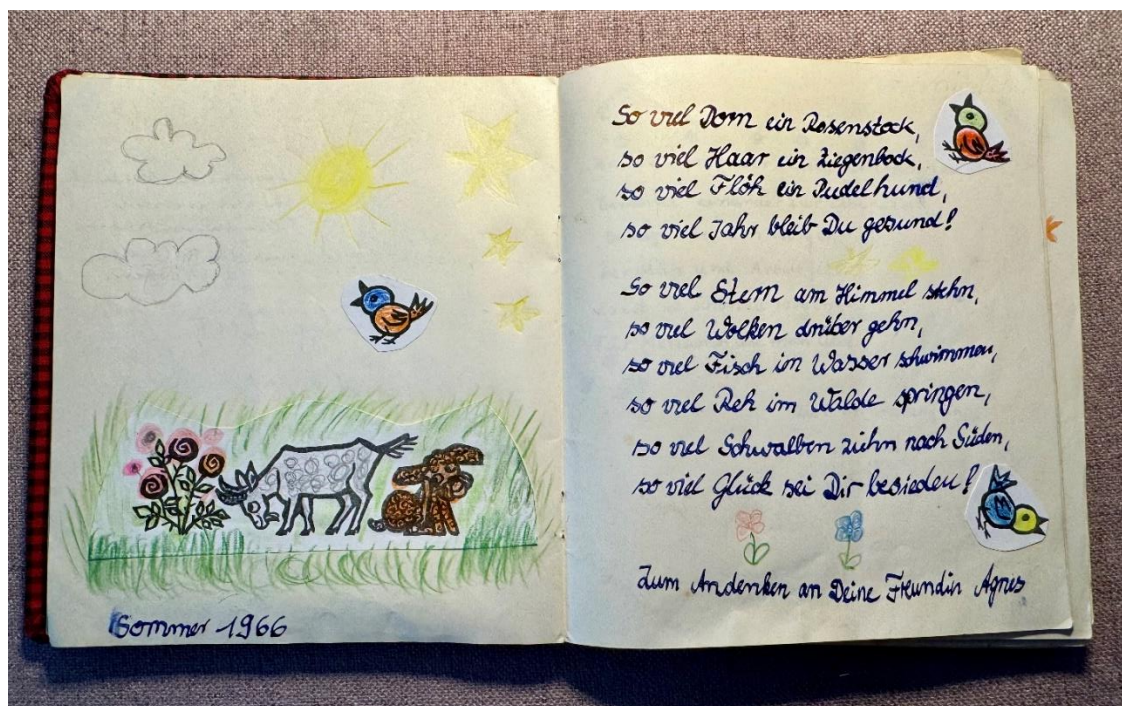 Sommer 1966
So viel Dorn ein Rosenstock,
so viel Haar ein Ziegenbock,
so viel Flöh ein Pudelhund,
so viel Jahr bleib Du gesund!
So viel Stern am Himmel stehn,
so viel Wolken drüber gehn,
so viel Fisch im Wasser schwimmen,
so viel Reh im Walde springen,
so viel Schwalben ziehn nach Süden,
so viel Glück sei Dir besieden!
Zum Andenken an Deine Freundin Agnes